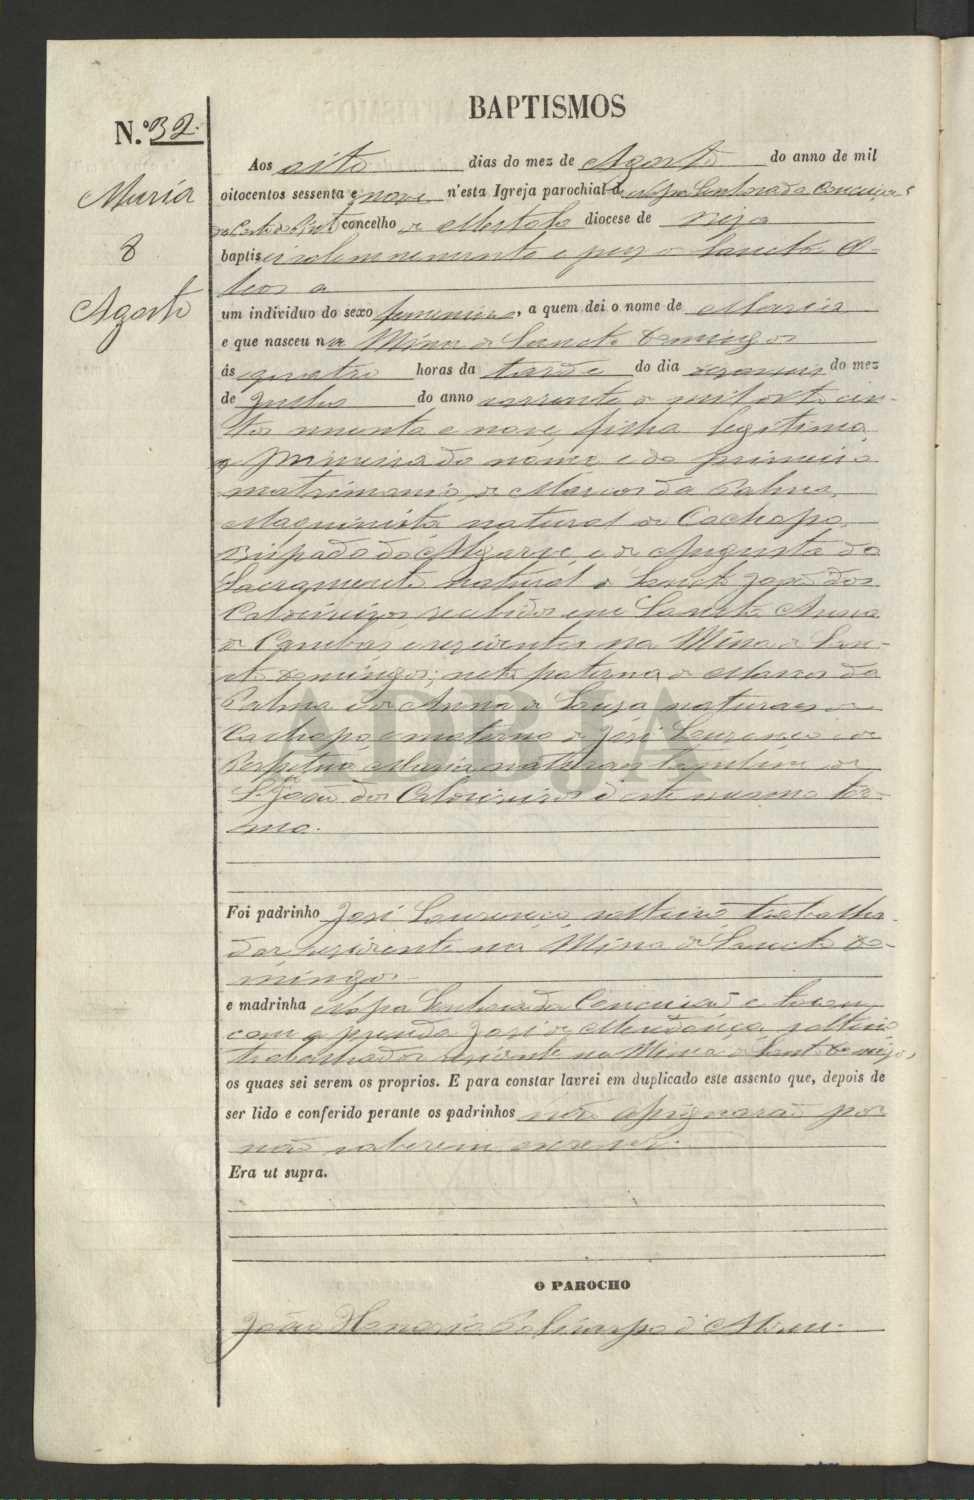 BAPTISMOS
N.º 32.
Maria
8
Agosto
Aos oito dias do mez de Agosto do anno de mil
oitocentos sessenta e nove n'esta Igreja parochial de Nossa Senhora da Conceição
concelho de Mertola diocese de Beja
baptisei solemnemente e puz o Sanctos O-
leos a
um individuo do sexo femenino, a quem dei o nome de Maria
e que nasceu na Mina de Sancto Domingos
ás quatro horas da tarde do dia do mez
de Julho do anno corrente de mil oito cen-
tos e nove, filha legitima
primeira do nome, e do primeiro
matrimonio, de Marcos da Palma,
Maquinista natural de Cachopo,
Bispado do Algarve, e de Augusta do
Sacramento natural de Sancto João dos
Caldeireiros recebidos em Sancta Anna
de Cambas, e rezidentes na Mina de San-
cto Domingos; neta paterna de Marcos da
Palma e de Anna de Souza naturaes de
Cachopo e materna de José Lourenço e de
Perpetua Maria, naturaes tambem de
S. João dos Caldeireiros d'este mesmo ter-
mo.
Foi padrinho José Lourenço solteiro trabalha-
dor rezidente na Mina de Sancto Do-
mingos
e madrinha Nossa Senhora da Conceição e tocou
com a prenda José de Mendonça, solteiro
trabalhador rezidente na Mina de Sancto Domingos,
os quaes sei serem os proprios. E para constar lavrei em duplicado este assento que, depois de
ser lido e conferido perante os padrinhos não assignarão por
não saberem escrever.
Era ut supra.
O PAROCHO
João Honorio Policarpo
ADBJA